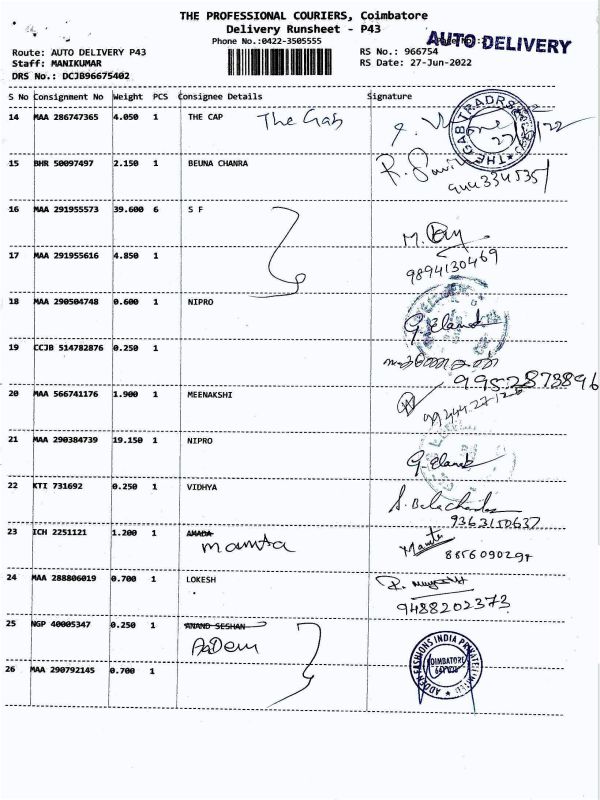 THE PROFESSIONAL COURIERS, Coimbatore
Delivery Runsheet - P43
Phone No.:0422-3505555
AUTO DELIVERY
Route: AUTO DELIVERY P43
RS No.: 966754
Staff: MANIKUMAR
RS Date: 27-Jun-2022
DRS No.: DCJB96675402
S No Consignment No Weight PCS Consignee Details Signature
14 MAA 286747365 4.050 1 THE CAP The Gab
THE GAB TRADRS
15 BHR 50097497 2.150 1 BEUNA CHANRA
16 MAA 291955573 39.600 6 S F
17 MAA 291955616 4.850 1
9894130469
18 MAA 290504748 0.600 1 NIPRO
G. Elamk
19 CCJB 514782876 0.250 1
9952873896
20 MAA 566741176 1.900 1 MEENAKSHI
21 MAA 290384739 19.150 1 NIPRO
G. Elamk
22 KTI 731692 0.250 1 VIDHYA
S. Balachander
9363150637
23 ICH 2251121 1.200 1 AMADA
mamta
Mamta
8856090298
24 MAA 288806019 0.700 1 LOKESH
9488202373
25 NGP 40005347 0.250 1 ANAND SESHAN
AaDem
26 MAA 290792145 0.700 1
ADDEN FASHIONS INDIA PRIVATE LIMITED
COIMBATORE